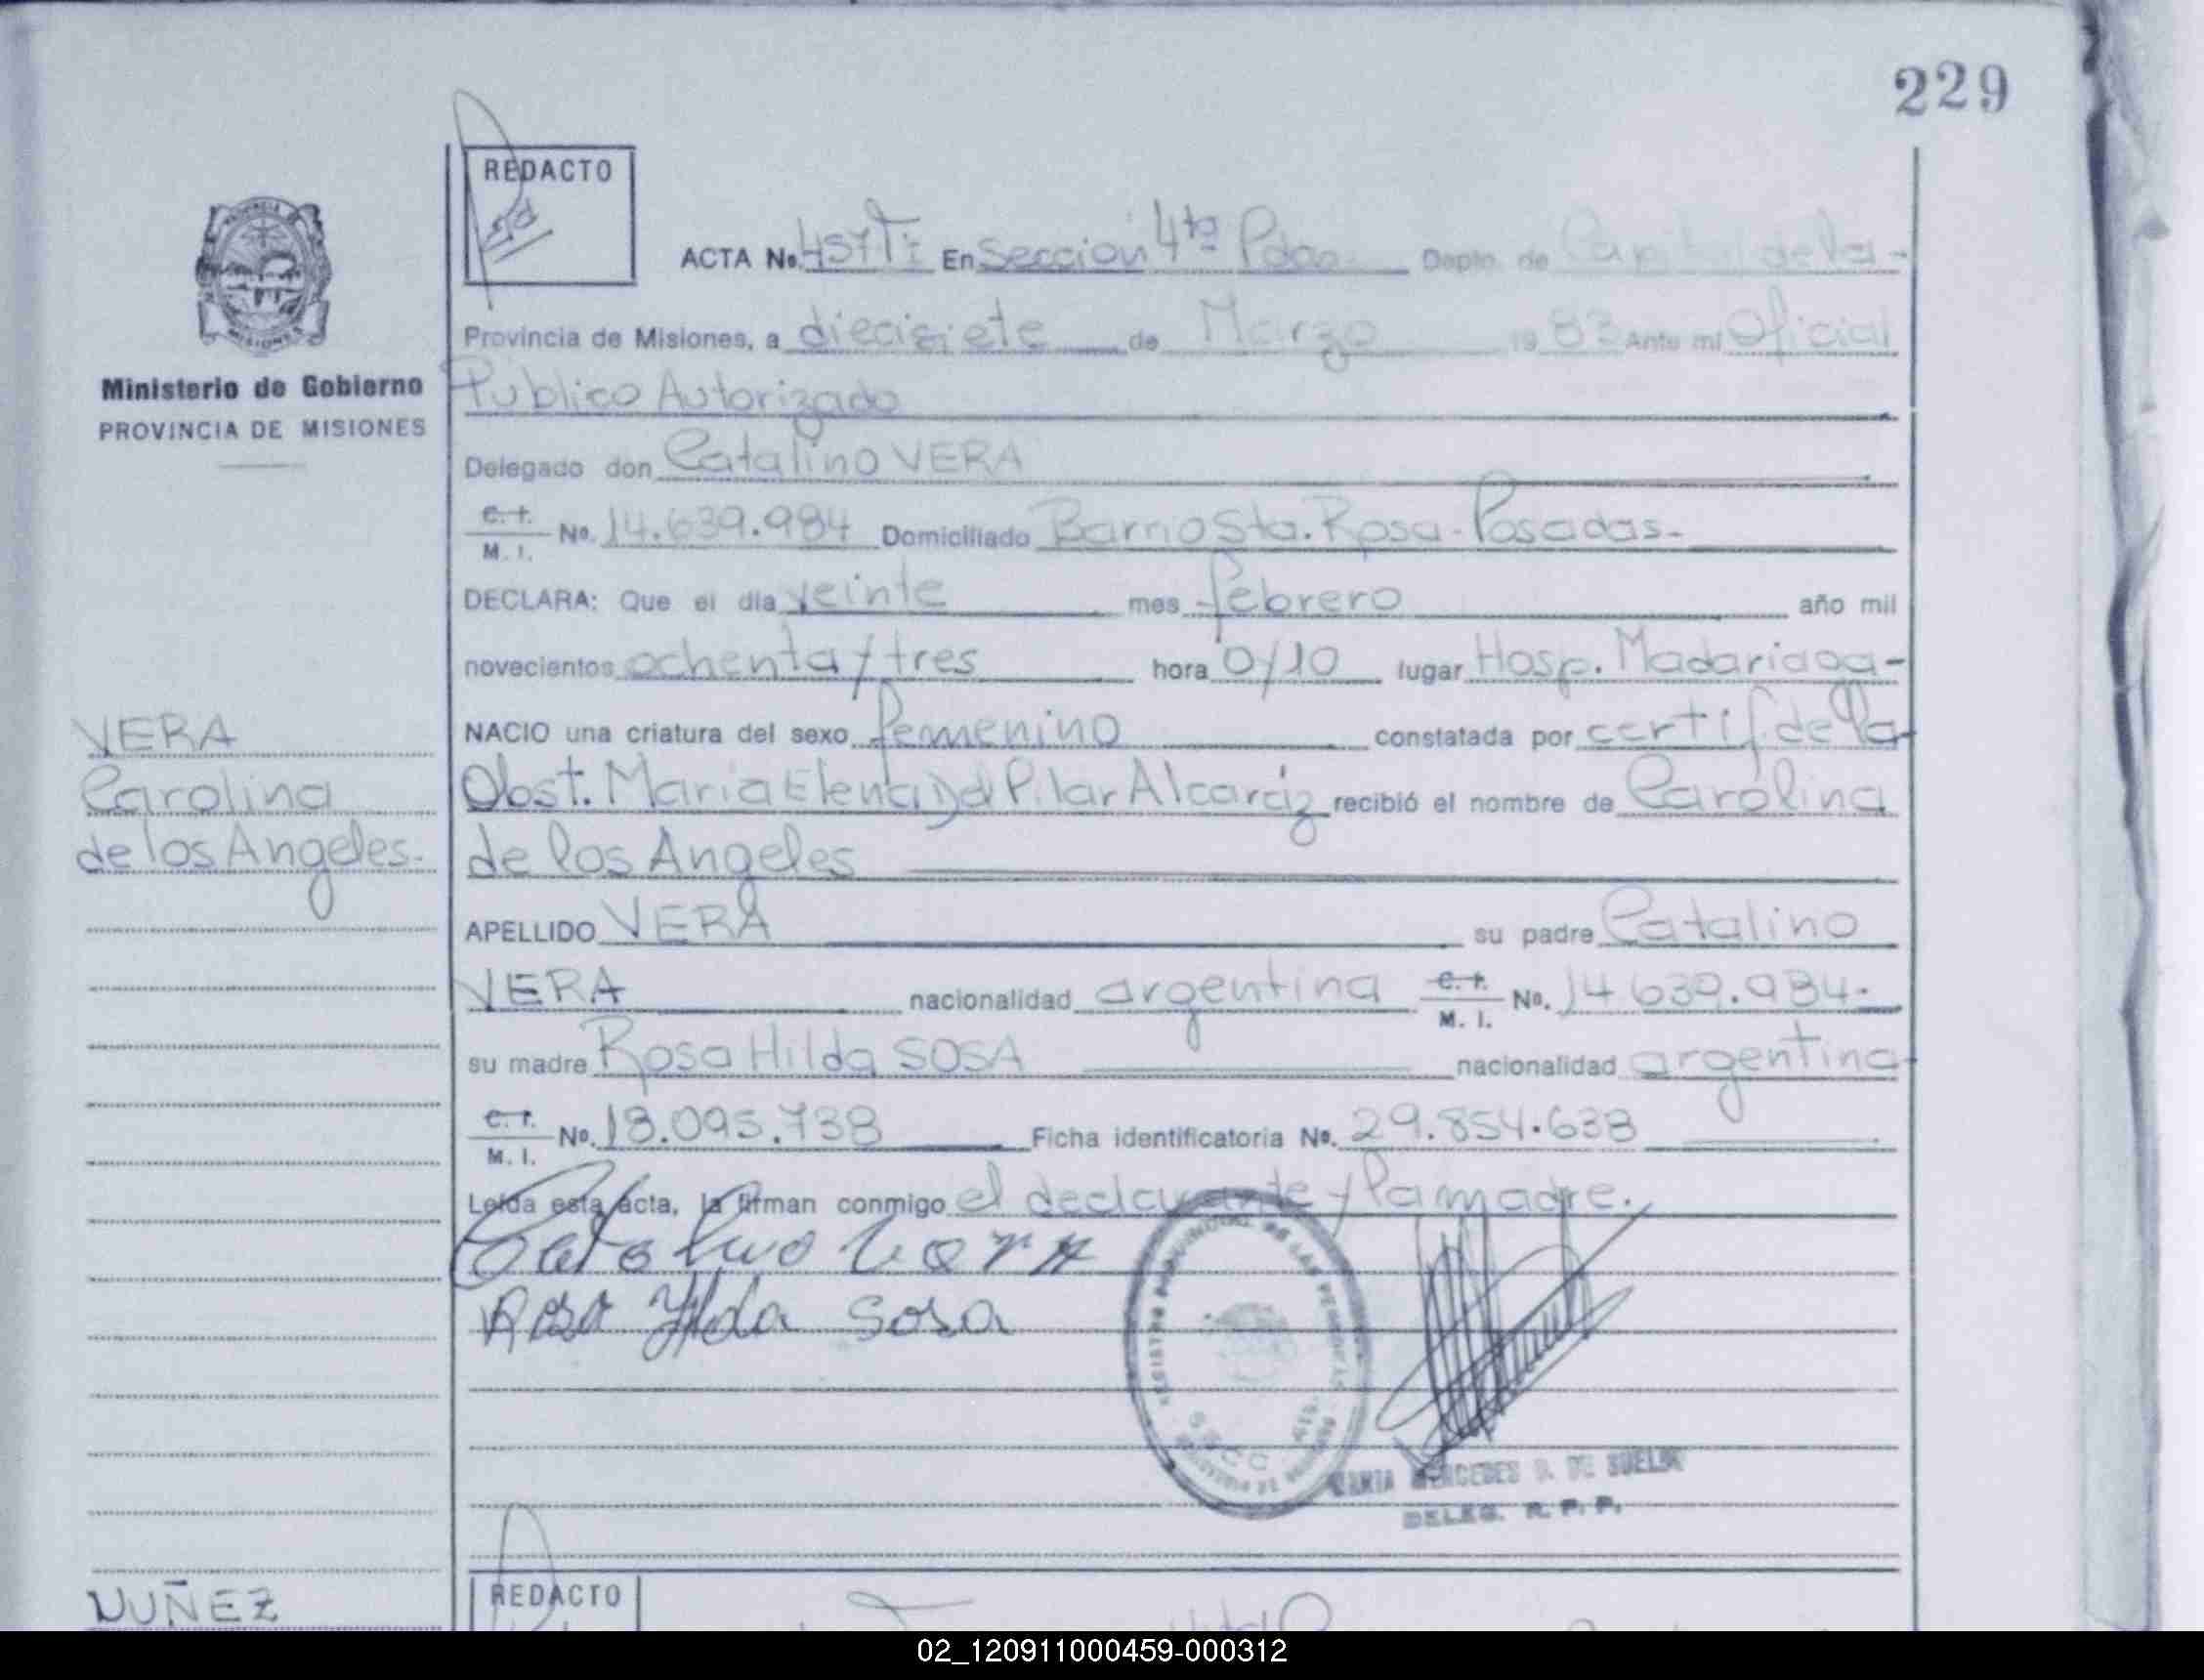 229
REDACTO
ACTA No. 457 Ti En Sección 4ta Pdas. Depto. de Capital de la-
Provincia de Misiones, a diecisiete de Marzo 1983 Ante mí Oficial
Ministerio de Gobierno
PROVINCIA DE MISIONES
Público Autorizado
Delegado don Catalino VERA
C. I. M. I. No. 14.639.984 Domiciliado Barrio Sta. Rosa-Posadas-
DECLARA: Que el día veinte mes febrero año mil
novecientos ochenta y tres hora 0y10 lugar Hosp. Madariaga-
NACIO una criatura del sexo femenino constatada por certif. de la
Obst. Maria Elena del Pilar Alcaráz recibió el nombre de Carolina
de los Angeles
VERA
Carolina
de los Angeles-
APELLIDO VERA su padre Catalino
VERA nacionalidad argentina C. I. M. I. No. 14.639.984-
su madre Rosa Hilda SOSA nacionalidad argentina
C. I. M. I. No. 18.095.738 Ficha identificatoria No. 29.854.638
Leída esta acta, la firman conmigo el declarante y la madre.
Catalino Vera
Rosa Ylda Sosa
REGISTRO PROVINCIAL DE LAS PERSONAS
SECC. 4ta.
MARIA MERCEDES DE
DELEG. R. P. P.
NUÑEZ
REDACTO
02_120911000459-000312